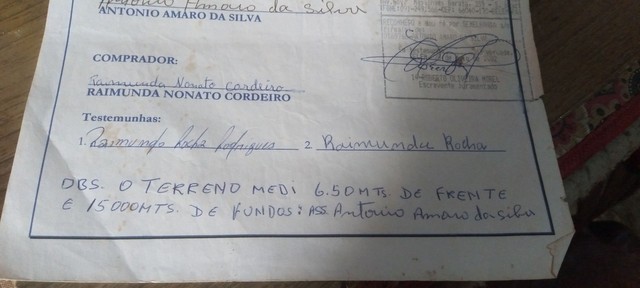 Antonio Amaro da Silva
ANTONIO AMARO DA SILVA
COMPRADOR:
Raimunda Nonato Cordeiro
RAIMUNDA NONATO CORDEIRO
Testemunhas:
1. Raimundo Rocha Rodrigues 2 Raimunda Rocha
OBS. O TERRENO MEDI 6.50MTS. DE FRENTE
E 15000MTS. DE FUNDOS: ASS. Antonio Amaro da Silva
Escrevente Juramentado